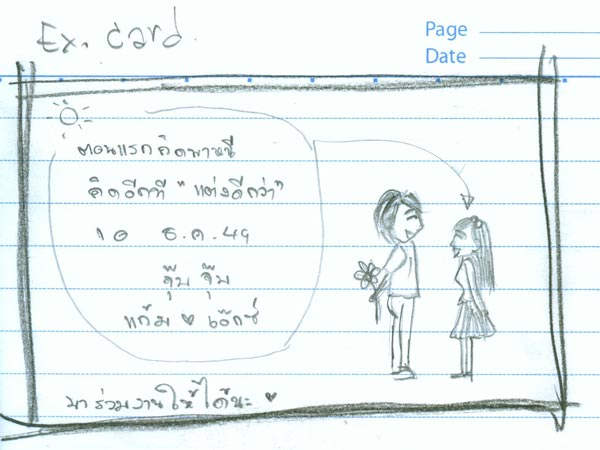 Ex. Card
Page
Date
ตอนแรกคิดพาหนี
คิดอีกที "แต่งดีกว่า"
10 ธ.ค. 49
จุ๊บ จุ๊บ
แก้ม ♥ เอ๊กซ์
มาร่วมงานให้ได้นะ ♥